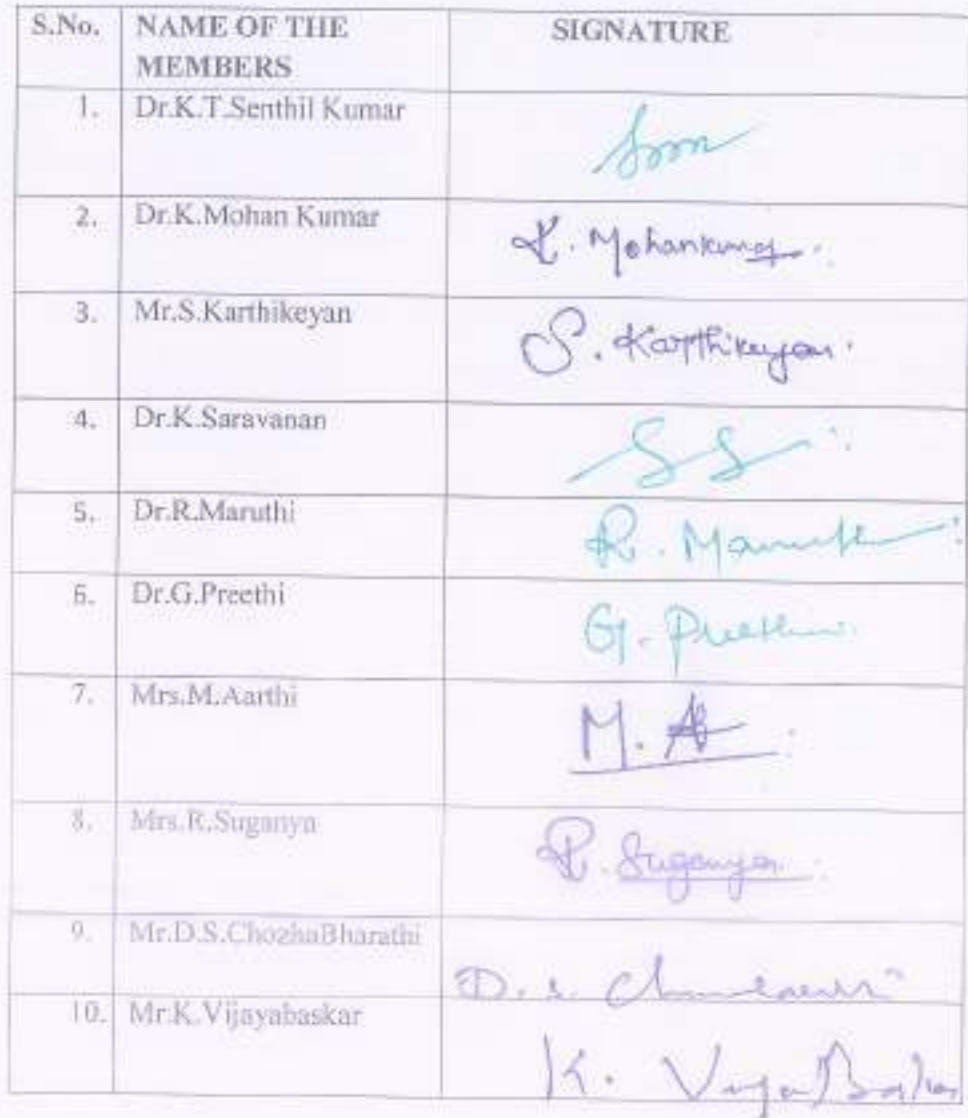 S.No. NAME OF THE MEMBERS SIGNATURE
1. Dr.K.T.Senthil Kumar
2. Dr.K.Mohan Kumar K. Mohankumar
3. Mr.S.Karthikeyan S. Karthikeyan
4. Dr.K.Saravanan
5. Dr.R.Maruthi R. Maruthi
6. Dr.G.Preethi G. Preethi
7. Mrs.M.Aarthi M. A
8. Mrs.R.Suganya R. Suganya
9. Mr.D.S.ChozhaBharathi D. S.
10. Mr.K.Vijayabaskar K.